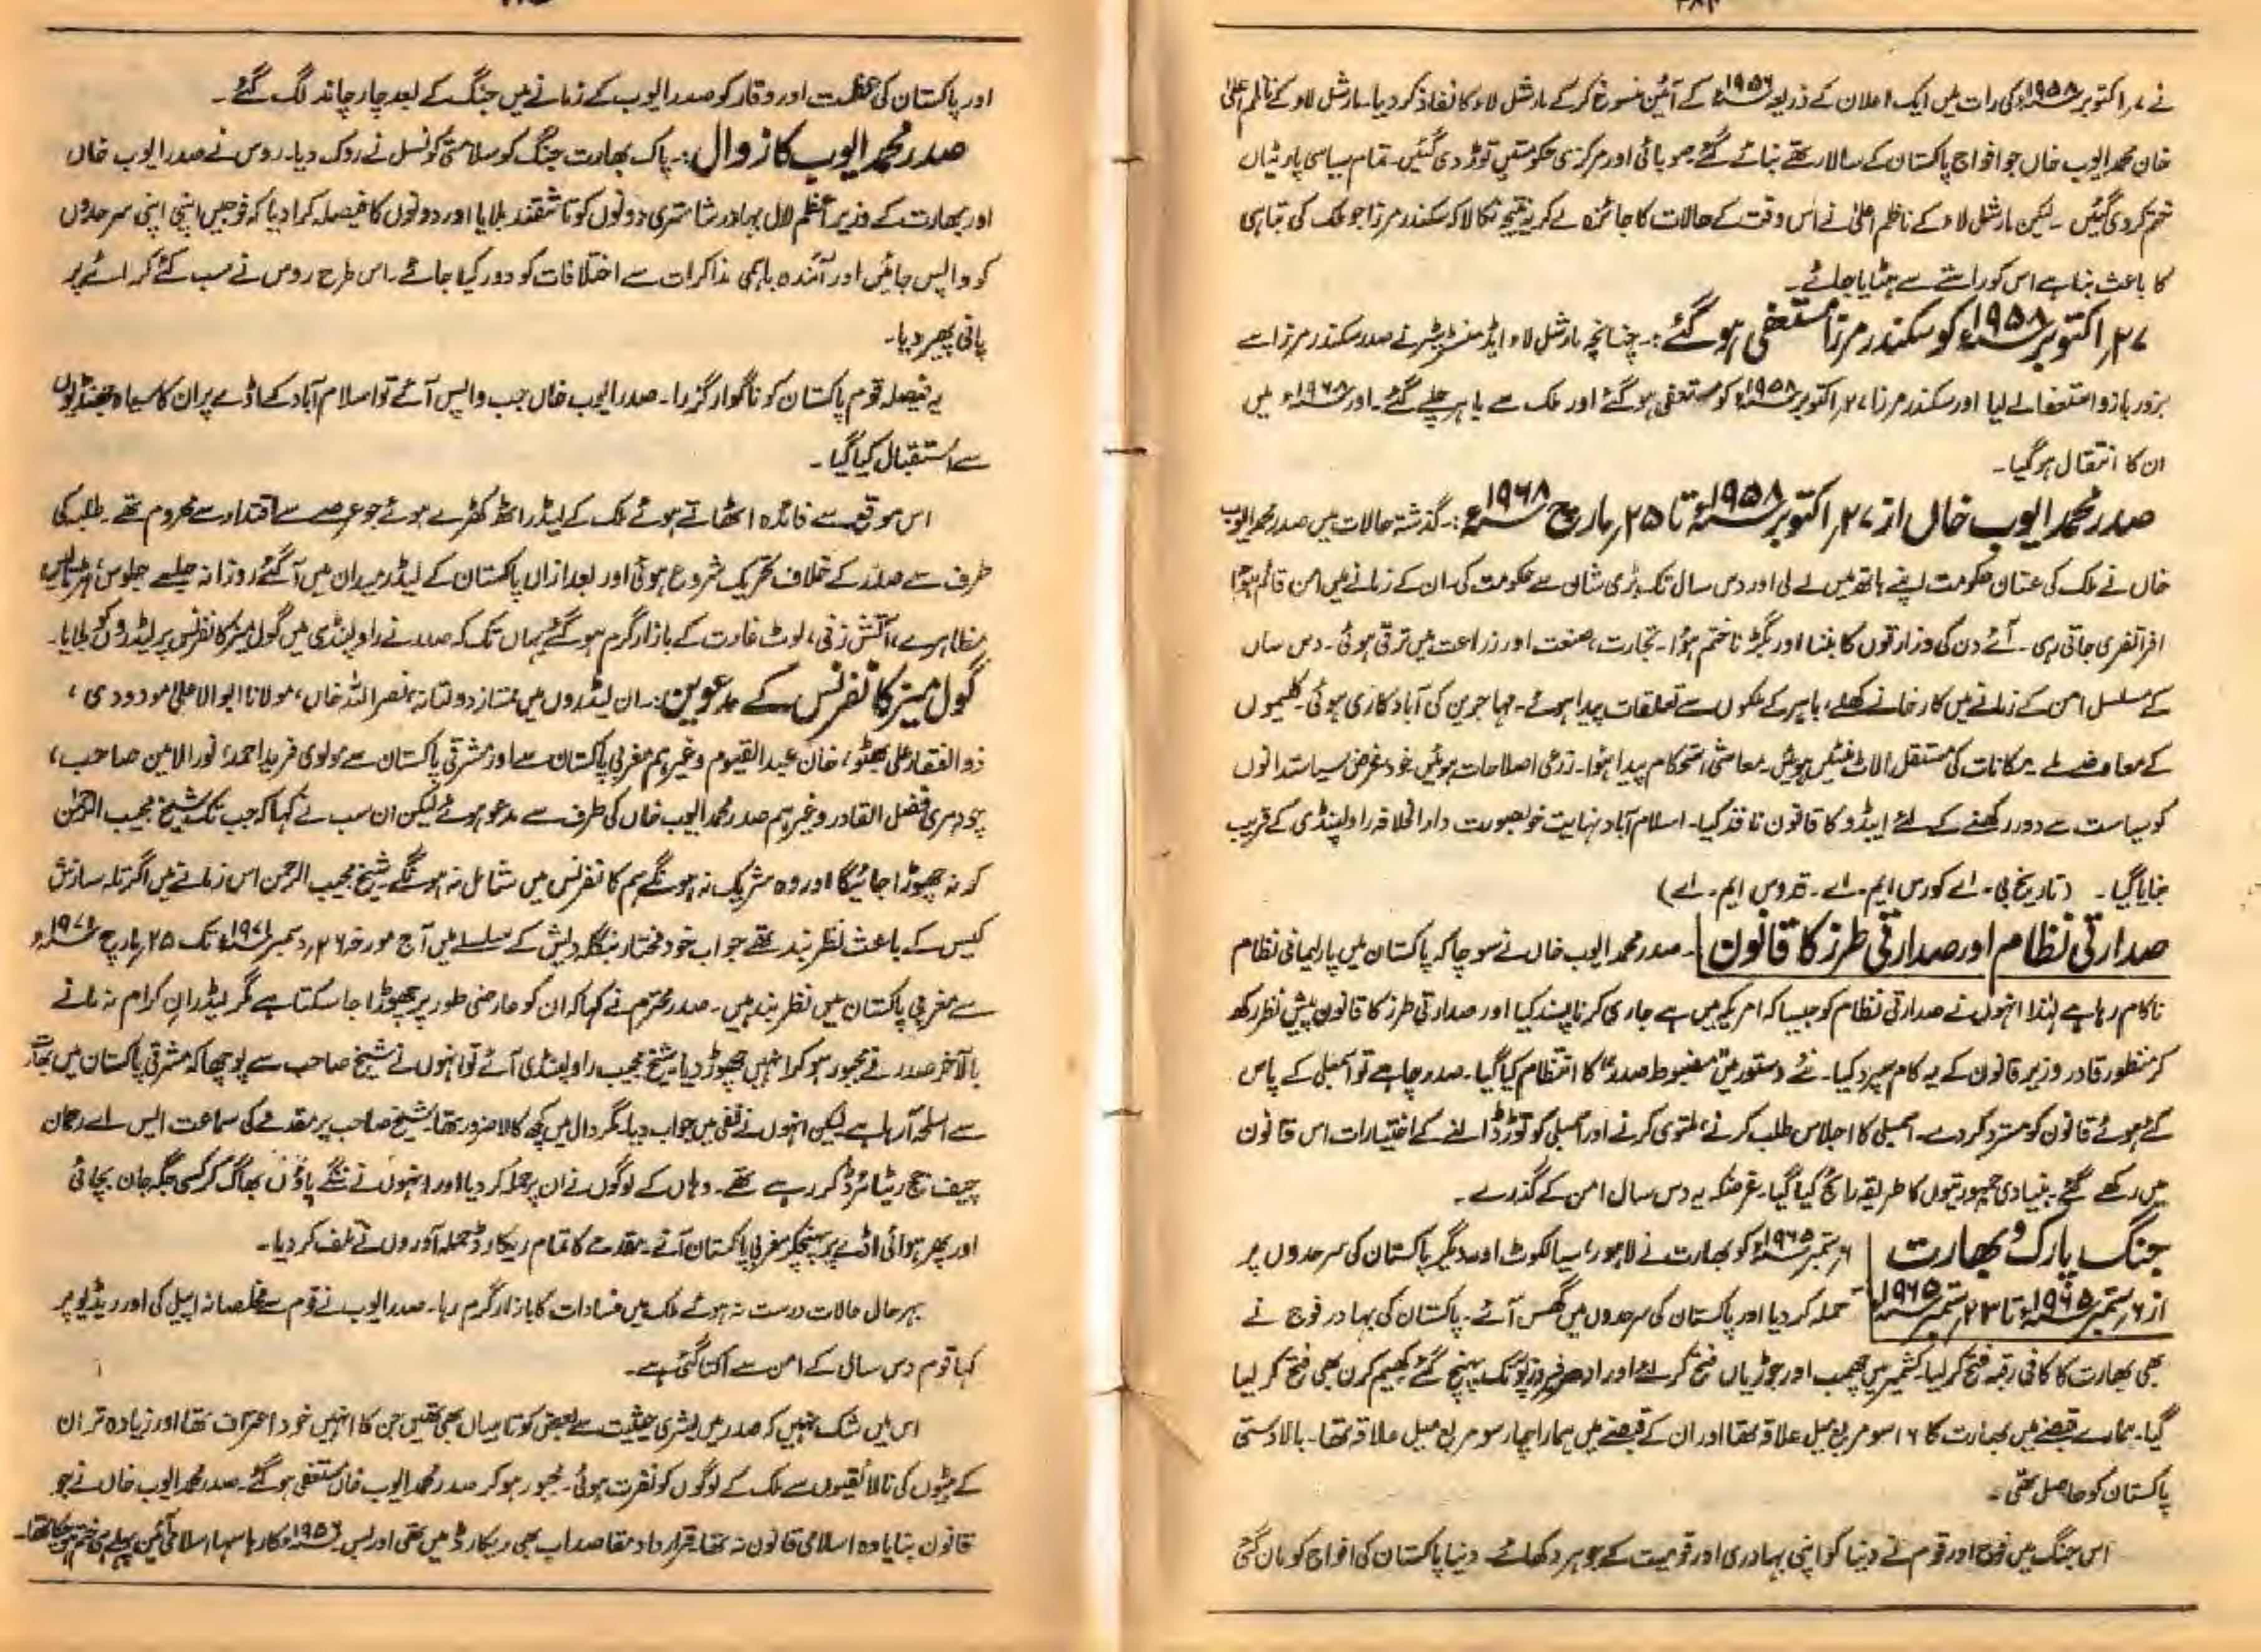 نے ۷؍اکتوبر ۱۹۵۸ء کی رات میں ایک اعلان کے ذریعہ ۱۹۵۶ء کے آئین منسوخ کرکے مارشل لاء کا نفاذ کر دیا۔ مارشل لاء کے ناظم اعلیٰ
خان محمد ایوب خاں جو افواج پاکستان کے سالار تھے بنائے گئے۔ صوبائی اور مرکزی حکومتیں توڑ دی گئیں۔ تمام سیاسی پارٹیاں
ختم کر دی گئیں ۔ لیکن مارشل لاء کے ناظم اعلیٰ نے اس وقت کے حالات کا جائزہ لے کر یہ نتیجہ نکالا کہ سکندر مرزا جو ملک کی تباہی
کا باعث بنا ہے اس کو راستے سے ہٹایا جائے۔
۲۷؍اکتوبر ۱۹۵۸ء کو سکندر مرزا مستعفی ہو گئے :۔ چنانچہ مارشل لاء ایڈمنسٹریٹر نے صدر سکندر مرزا سے
بزور بازو استعفا لے لیا اور سکندر مرزا ۲۷؍اکتوبر ۱۹۵۸ء کو مستعفی ہو گئے اور ملک سے باہر چلے گئے۔ اور ۱۹۶۸ء میں
ان کا انتقال ہو گیا۔
صدر محمد ایوب خاں از ۲۷؍اکتوبر ۱۹۵۸ء تا ۲۵؍مارچ ۱۹۶۸ء :۔ گذشتہ حالات میں صدر محمد ایوب
خاں نے ملک کی عنان حکومت اپنے ہاتھ میں لے لی اور دس سال تک بڑی شان سے حکومت کی۔ ان کے زمانے میں امن قائم ہوا
افراتفری جاتی رہی ۔ آئے دن کی وزارتوں کا بننا اور بگڑنا ختم ہوا۔ تجارت، صنعت اور زراعت میں ترقی ہوئی۔ دس سال
کے مسلسل امن کے زمانے میں کارخانے کھلے، باہر کے ملکوں سے تعلقات پیدا ہوئے۔ مہاجرین کی آباد کاری ہوئی۔ کلیموں
کے معاوضے ملے۔ مکانات کی مستقل الاٹمنٹیں ہوئیں۔ معاشی استحکام پیدا ہوا۔ زرعی اصلاحات ہوئیں۔ خود غرض سیاستدانوں
کو سیاست سے دور رکھنے کے لئے ایبڈو کا قانون نافذ کیا۔ اسلام آباد نہایت خوبصورت دارالخلافہ راولپنڈی کے قریب
بنایا گیا۔ (تاریخ بی۔اے کورس ایم۔اے۔ قدوس ایم۔اے)
صدارتی نظام اور صدارتی طرز کا قانون ۔ صدر محمد ایوب خاں نے سوچا کہ پاکستان میں پارلیمانی نظام
ناکام رہا ہے لہٰذا انہوں نے صدارتی نظام کو جیسا کہ امریکہ میں ہے جاری کرنا پسند کیا اور صدارتی طرز کا قانون پیش نظر رکھ
کر منظور قادر وزیر قانون کے یہ کام سپرد کیا۔ نئے دستور میں "مضبوط صدر" کا انتظام کیا گیا۔ صدر چاہے تو اسمبلی کے پاس
کئے ہوئے قانون کو مسترد کر دے۔ اسمبلی کا اجلاس طلب کرنے، ملتوی کرنے اور اسمبلی کو توڑ ڈالنے کے اختیارات اس قانون
میں رکھے گئے۔ بنیادی جمہوریتوں کا طریقہ رائج کیا گیا۔ غرضکہ یہ دس سال امن کے گذرے۔
جنگ پاک و بھارت ۶؍ستمبر ۱۹۶۵ء کو بھارت نے لاہور، سیالکوٹ اور دیگر پاکستان کی سرحدوں پر
از ۶؍ستمبر ۱۹۶۵ء تا ۲۳؍ستمبر ۱۹۶۵ء حملہ کر دیا اور پاکستان کی سرحدوں میں گھس آئے۔ پاکستان کی بہادر فوج نے
بھی بھارت کا کافی رقبہ فتح کر لیا۔ کشمیر میں چھمب اور جوڑیاں فتح کر لئے اور ادھر فیروز پور تک پہنچ گئے۔ کھیم کرن بھی فتح کر لیا
گیا۔ ہمارے قبضے میں بھارت کا ۱۶ سو مربع میل علاقہ تھا اور ان کے قبضے میں ہمارا چار سو مربع میل علاقہ تھا۔ بالادستی
پاکستان کو حاصل تھی۔
اس جنگ میں فوج اور قوم نے دنیا کو اپنی بہادری اور قومیت کے جوہر دکھائے۔ دنیا پاکستان کی افواج کو مان گئی
اور پاکستان کی عظمت اور وقار کو صدر ایوب کے زمانے میں جنگ کے بعد چار چاند لگ گئے۔
صدر محمد ایوب کا زوال :۔ پاک بھارت جنگ کو سلامتی کونسل نے روک دیا۔ روس نے صدر ایوب خاں
اور بھارت کے وزیر اعظم لال بہادر شاستری دونوں کو تاشقند بلایا اور دونوں کا فیصلہ کرا دیا کہ فوجیں اپنی اپنی سرحدوں
کو واپس جائیں اور آئندہ باہمی مذاکرات سے اختلافات کو دور کیا جائے۔ اس طرح روس نے سب کئے کرائے پر
پانی پھیر دیا۔
یہ فیصلہ قوم پاکستان کو ناگوار گزرا۔ صدر ایوب خاں جب واپس آئے تو اسلام آباد کے اڈے پر ان کا سیاہ جھنڈیوں
سے استقبال کیا گیا۔
اس موقع سے فائدہ اٹھاتے ہوئے ملک کے لیڈر اٹھ کھڑے ہوئے جو عرصے سے اقتدار سے محروم تھے۔ طلبہ کی
طرف سے صدر کے خلاف تحریک شروع ہوئی اور بعد ازاں پاکستان کے لیڈر میدان میں آ گئے۔ روزانہ جلسے جلوس، ہڑتالیں
مظاہرے، آتش زنی، لوٹ غارت کے بازار گرم ہو گئے یہاں تک کہ صدر نے راولپنڈی میں گول میز کانفرنس پر لیڈروں کو بلایا۔
گول میز کانفرنس کے مدعوین :۔ ان لیڈروں میں ممتاز دولتانہ، نصر اللہ خاں، مولانا ابوالاعلیٰ مودودی،
ذوالفقار علی بھٹو، خان عبدالقیوم وغیرہم مغربی پاکستان سے اور مشرقی پاکستان سے مولوی فرید احمد، نور الامین صاحب،
چودھری فضل القادر وغیرہم صدر محمد ایوب خاں کی طرف سے مدعو ہوئے لیکن ان سب نے کہا کہ جب تک شیخ مجیب الرحمٰن
کو نہ چھوڑا جائیگا اور وہ شریک نہ ہونگے ہم کانفرنس میں شامل نہ ہونگے۔ شیخ مجیب الرحمن اس زمانے میں اگرتلہ سازش
کیس کے باعث نظر بند تھے جو اب خود مختار بنگلہ دیش کے سلسلے میں آج مورخہ ۲۶؍دسمبر ۱۹۷۱ء تک ۲۵؍مارچ ۱۹۷۱ء
سے مغربی پاکستان میں نظر بند ہیں۔ صدر محترم نے کہا کہ ان کو عارضی طور پر چھوڑا جا سکتا ہے مگر لیڈران کرام نہ مانے
بالآخر صدر نے مجبور ہو کر انہیں چھوڑ دیا۔ شیخ مجیب راولپنڈی آئے تو انہوں نے شیخ صاحب سے پوچھا کہ مشرقی پاکستان میں بھارت
سے اسلحہ آ رہا ہے لیکن انہوں نے نفی میں جواب دیا۔ مگر دال میں کچھ کالا ضرور تھا۔ شیخ صاحب پر مقدمے کی سماعت ایس اے رحمان
چیف جج ریٹائرڈ کر رہے تھے۔ وہاں کے لوگوں نے ان پر حملہ کر دیا اور انہوں نے ننگے پاؤں بھاگ کر کسی جگہ جان بچائی
اور پھر ہوائی اڈے پر پہنچکر مغربی پاکستان آئے۔ مقدمے کا تمام ریکارڈ حملہ آوروں نے تلف کر دیا۔
بہرحال حالات درست نہ ہوئے ملک میں فسادات کا بازار گرم رہا۔ صدر ایوب نے قوم سے مخلصانہ اپیل کی اور ریڈیو پر
کہا قوم دس سال کے امن سے اکتا گئی ہے۔
اس میں شک نہیں کہ صدر میں بشری حیثیت سے بعض کوتاہیاں بھی تھیں جن کا انہیں خود اعتراف تھا اور زیادہ تر ان
کے بیٹوں کی نالائقیوں سے ملک کے لوگوں کو نفرت ہوئی۔ مجبور ہو کر صدر محمد ایوب خاں مستعفی ہو گئے۔ صدر محمد ایوب خاں نے جو
قانون بنایا وہ اسلامی قانون نہ تھا۔ قرارداد مقاصد اب بھی ریکارڈ میں تھی اور بس۔ ۱۹۵۶ء کا رہا سہا اسلامی آئین پہلے ہی ختم ہو چکا تھا۔